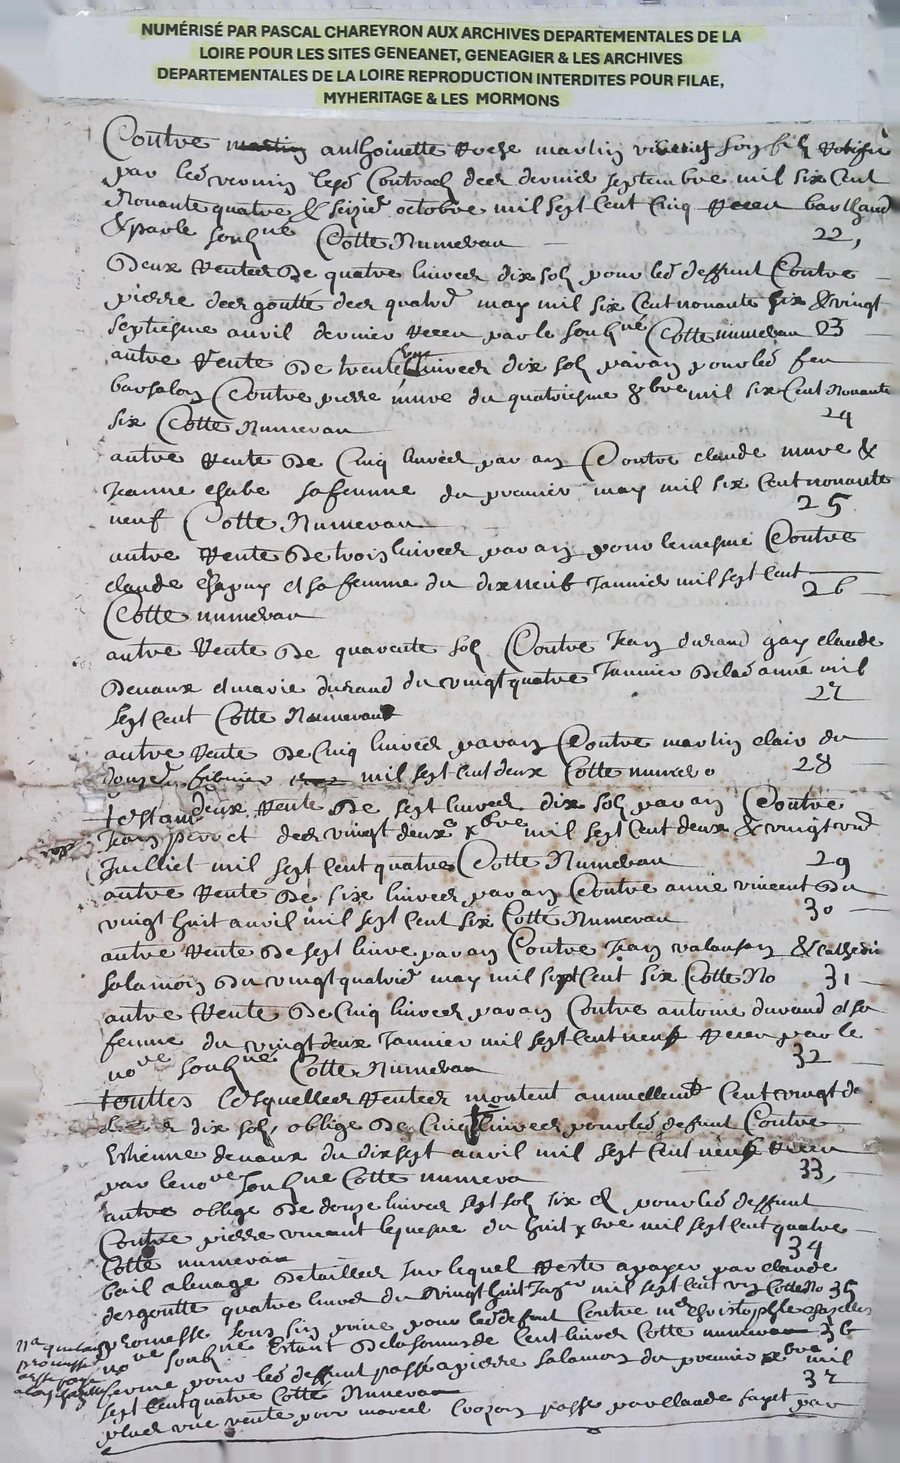 NUMÉRISÉ PAR PASCAL CHAREYRON AUX ARCHIVES DEPARTEMENTALES DE LA
LOIRE POUR LES SITES GENEANET, GENEAGIER & LES ARCHIVES
DEPARTEMENTALES DE LA LOIRE REPRODUCTION INTERDITES POUR FILAE,
MYHERITAGE & LES MORMONS
Contre anthoinette martin son fils
par led contract des dernier septembre mil six Cent
Nonante quatre & octobre mil sept Cent Cinq Receu
& par le soubne Cotte Numeran 22,
Deux Rentes De quatre livres dix sols pour led deffunt Contre
pierre desgoutte des quatre may mil six Cent nonante six & vingt
septiesme avril dernier Receu par le soubne Cotte numeran 23
autre Rente De trente livres dix sols par an pour led feu
Contre pierre mure du quatriesme 8bre mil six Cent Nonante
six Cotte Numeran 24
autre Rente De Cinq livres par an Contre claude mure &
Jeanne sa femme du premier may mil six Cent nonante
neuf Cotte Numeran 25
autre Rente De trois livres par an pour le mesme Contre
claude et sa femme du dix neuf Janvier mil sept Cent
Cotte numeran 26
autre Rente De quarente sols Contre Jean durand claude
Devaux et marie durand du vingt quatre Janvier de lad année mil
sept Cent Cotte Numeran 27
autre Rente De Cinq livres par an Contre martin clair du
mil sept Cent deux Cotte numero 28
deux Rente De sept livres dix sols par an Contre
Jean perret des vingt deux xbre mil sept Cent deux & vingt
Juilliet mil sept Cent quatre Cotte Numeran 29
autre Rente De six livres par an Contre anne vincent Du
vingt huit avril mil sept Cent six Cotte Numeran 30
autre Rente De sept livre par an Contre Jean &
salamon Du vingt quatre may mil sept Cent six Cotte No 31
autre Rente De Cinq livres par an Contre antoine durand et sa
femme du vingt deux Janvier mil sept Cent neuf Receu par le
nore soubne Cotte Numeran 32
touttes lesquelles Rentes montent annuellemt Cent vingt
dix sols, oblige De Cinq livres pour led deffunt Contre
Estienne devaux du dix sept avril mil sept Cent neuf Receu
par le nore soubne Cotte numera 33,
autre oblige De douze livres sept sols six d pour led deffunt
Contre pierre vincent du huit xbre mil sept Cent quatre
Cotte numeran 34
bail Detailles sur lequel Reste a payer par claude
desgoutte quatre livres du vingt huit mil sept Cent Cotte No 35
promesse sous sin prive pour led deffunt Contre me Christophle
nore soubne Estant De la somme de Cent livres Cotte numeran 36
ferme pour led deffunt passé a pierre salamon du premier xbre mil
sept Cent quatre Cotte Numeran 37
plus une vente pour marcel passé par claude fayet par